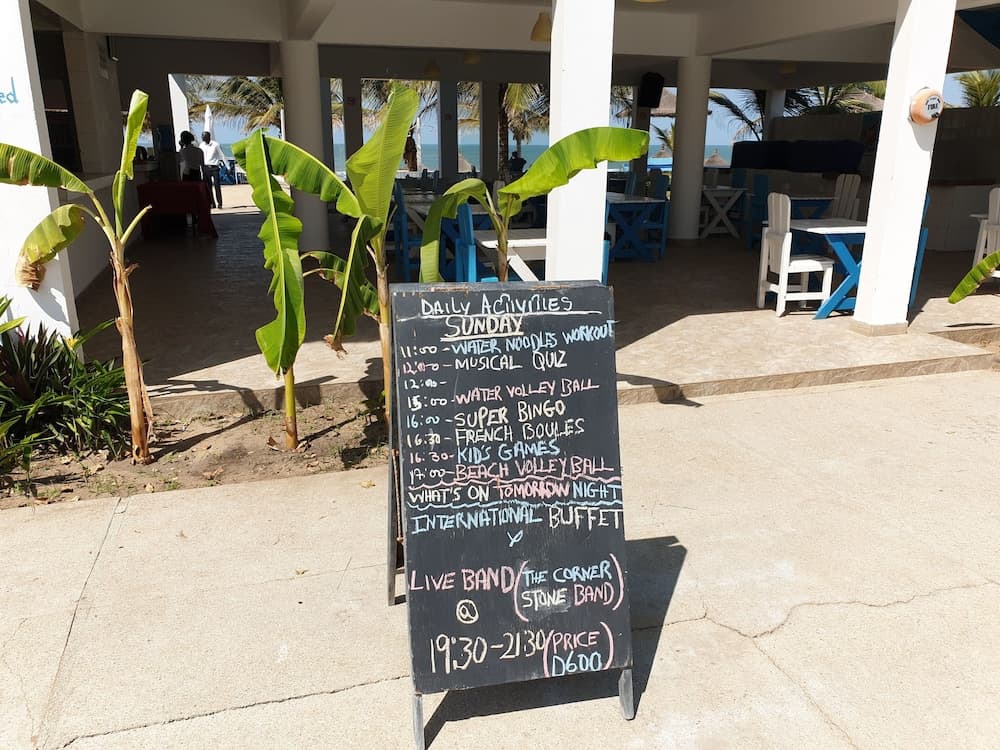 ed
DAILY ACTIVITIES
SUNDAY
11:00 - WATER NOODLES WORKOUT
12:00 - MUSICAL QUIZ
12:00 -
15:00 - WATER VOLLEY BALL
16:00 - SUPER BINGO
16:30 - FRENCH BOULES
16:30 - KID'S GAMES
17:00 - BEACH VOLLEY BALL
WHAT'S ON TOMORROW NIGHT
INTERNATIONAL BUFFET
LIVE BAND (THE CORNER
STONE BAND)
@
19:30-21:30 (PRICE
D600)